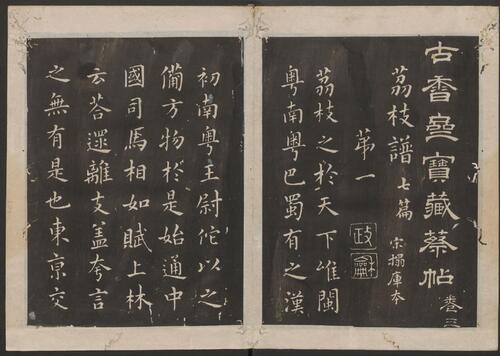 古香齋寶藏蔡帖 卷三
荔枝譜 七篇 宋搨庫本
苐一
荔枝之於天下唯閩
粤南粤巴蜀有之漢
初南粤王尉佗以之
備方物於是始通中
國司馬相如賦上林
云荅遝離支盖夸言
之無有是也東京交